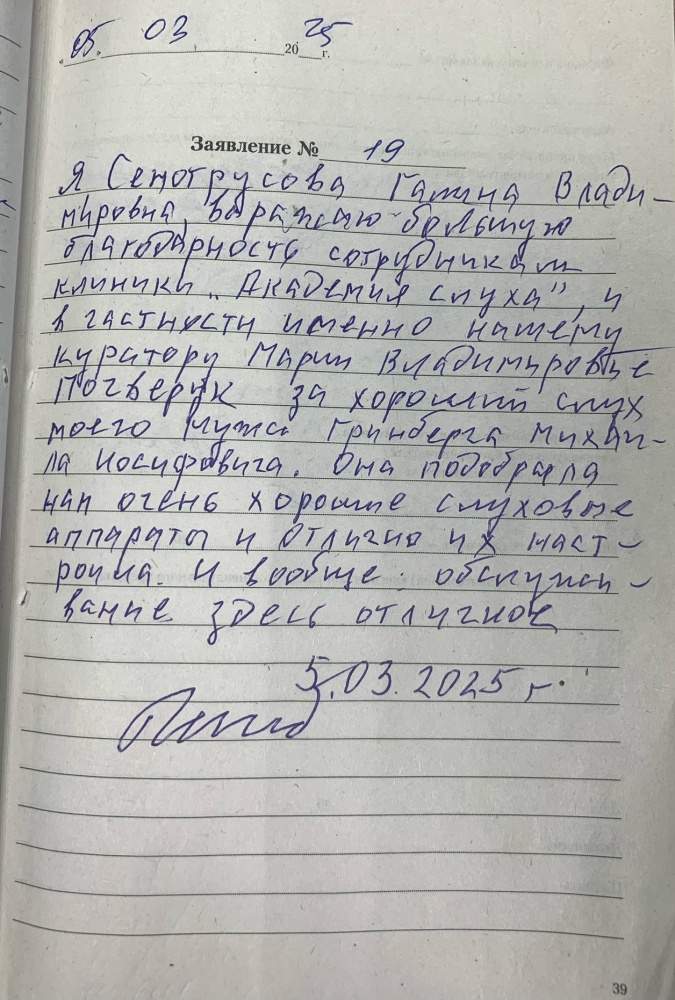 05. 03 2025 г.
Заявление № 19
Я Сенотрусова Галина Влади-
мировна, выражаю большую
благодарность сотрудникам
клиники „Академия слуха", и
в частности именно нашему
куратору Марии Владимировне
Почверук за хороший слух
моего мужа Гринберга Михаи-
ла Иосифовича. Она подобрала
нам очень хорошие слуховые
аппараты и отлично их наст-
роила. И вообще обслужи-
вание здесь отличное
5.03.2025 г.
39